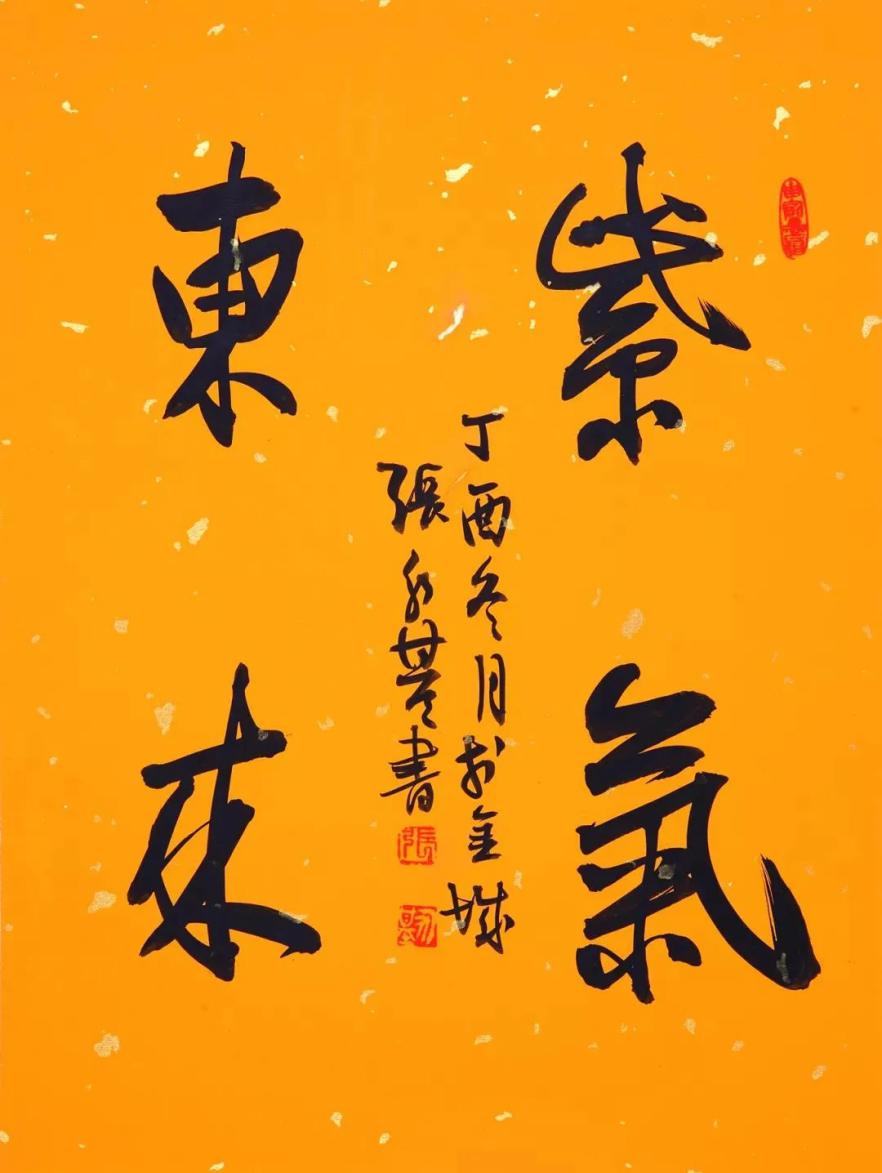 紫氣
東來
丁酉冬月於金城
張
書
張